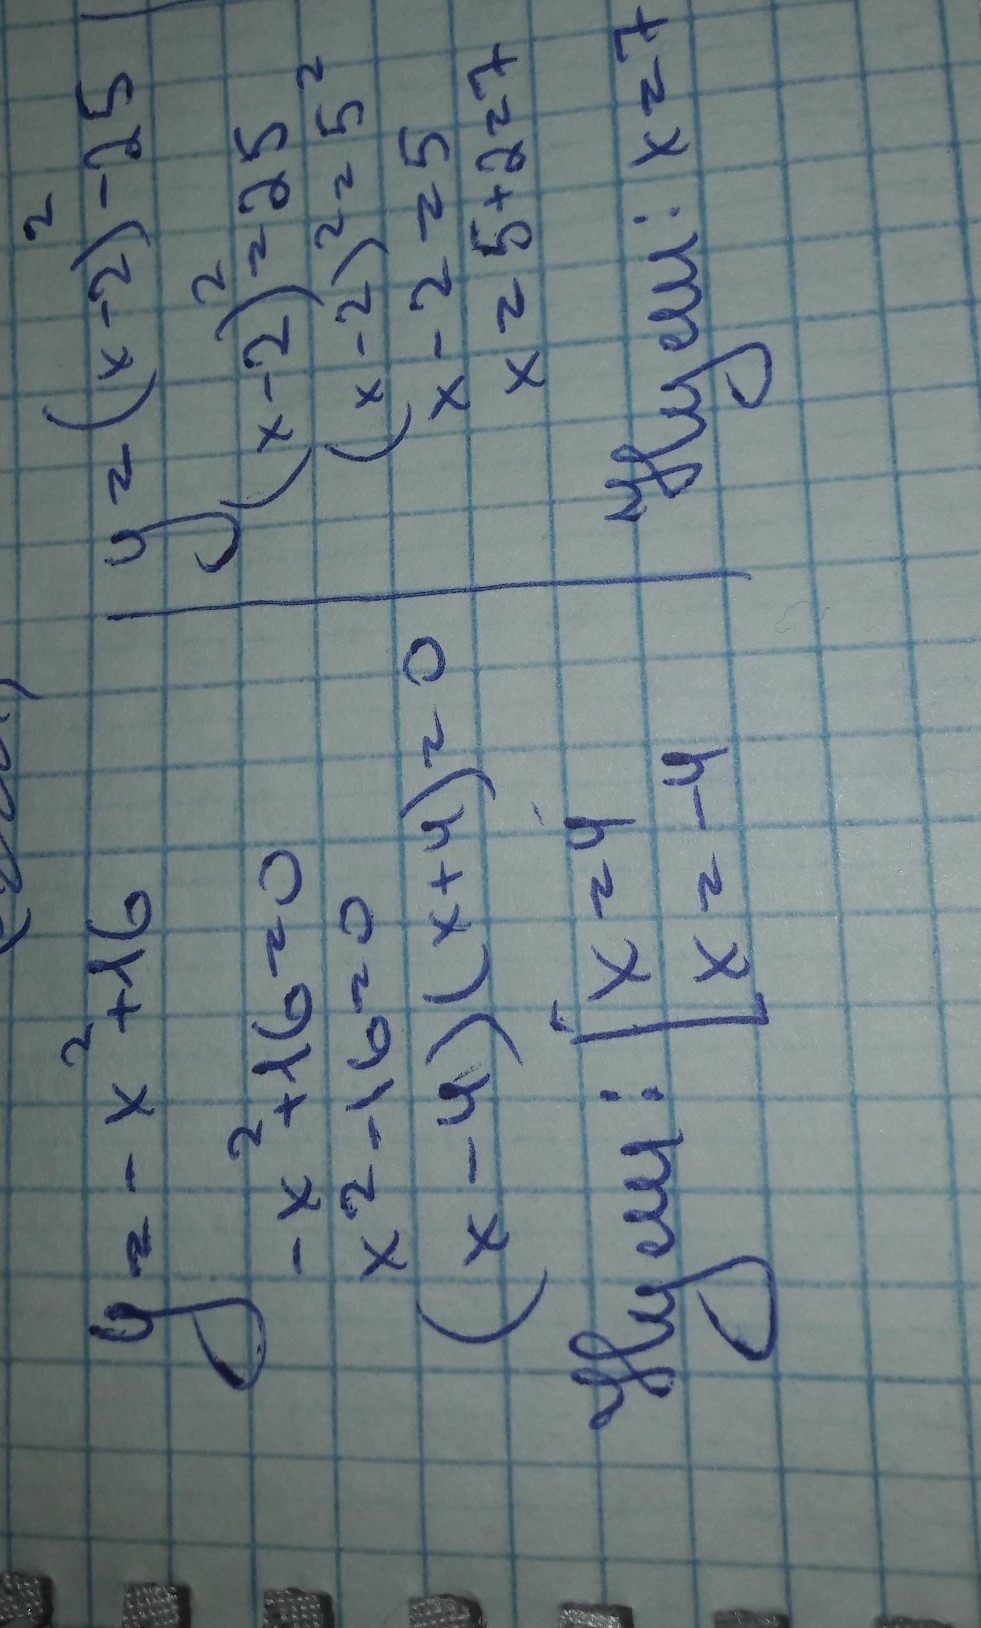 y = -x² + 16
-x² + 16 = 0
x² - 16 = 0
(x - 4)(x + 4) = 0
[ x = 4
x = -4
y = (x-2)² - 25
(x-2)² = 25
(x-2)² = 5²
x - 2 = 5
x = 5 + 2 = 7
: x = 7